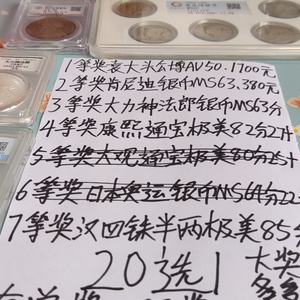 1等奖袁大头公博AU50.1700元
2等奖肯尼迪银币MS63.380元
3等奖大力神法郎银币MS63分
4等奖康熙通宝极美82分2升
5等奖大观通宝极美80分25十
6等奖日本奥运银币MS64分22
7等奖汉四铢半两极美85分
20选1
大奖